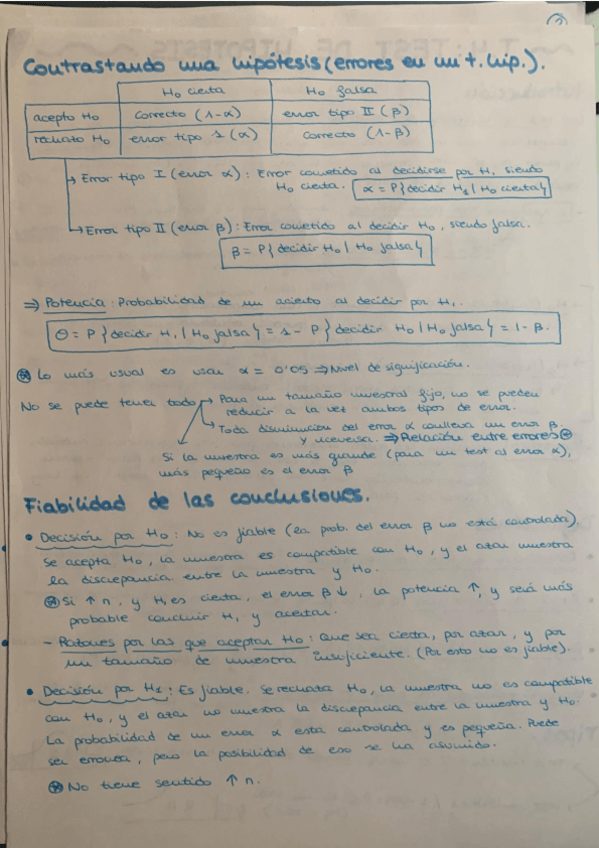 Contrastando una hipótesis (errores en un t. hip.).
H₀ cierta H₀ falsa
acepto H₀ correcto (1-α) error tipo II (β)
rechazo H₀ error tipo 1 (α) correcto (1-β)
→ Error tipo I (error α): Error cometido al decidirse por H₁ siendo
H₀ cierta. α = P{decidir H₁ | H₀ cierta}
→ Error tipo II (error β): Error cometido al decidir H₀, siendo falsa.
β = P{decidir H₀ | H₀ falsa}
⇒ Potencia: Probabilidad de un acierto al decidir por H₁.
Θ = P{decidir H₁ | H₀ falsa} = 1 - P{decidir H₀ | H₀ falsa} = 1 - β.
⊛ Lo más usual es usar α = 0'05 ⇒ Nivel de significación.
No se puede tener todo → Para un tamaño muestral fijo, no se pueden
reducir a la vez ambos tipos de error.
→ Toda disminucion del error α conlleva un error β.
y viceversa. ⇒ Relación entre errores ⊖
Si la muestra es más grande (para un test al error α),
más pequeño es el error β
Fiabilidad de las conclusiones.
• Decisión por H₀: No es fiable (la prob. del error β no está controlada).
Se acepta H₀, la muestra es compatible con H₀, y el azar muestra
la discrepancia entre la muestra y H₀.
⊛ Si ↑ n, y H₁ es cierta, el error β ↓, la potencia ↑, y será más
probable concluir H₁ y acertar.
- Razones por las que aceptar H₀: Que sea cierta, por azar, y por
un tamaño de muestra insuficiente. (Por esto no es fiable).
• Decisión por H₁: Es fiable. Se rechaza H₀, la muestra no es compatible
con H₀, y el azar no muestra la discrepancia entre la muestra y H₀.
La probabilidad de un error α está controlada y es pequeña. Puede
ser errónea, pero la posibilidad de eso se ha asumido.
⊛ No tiene sentido ↑ n.